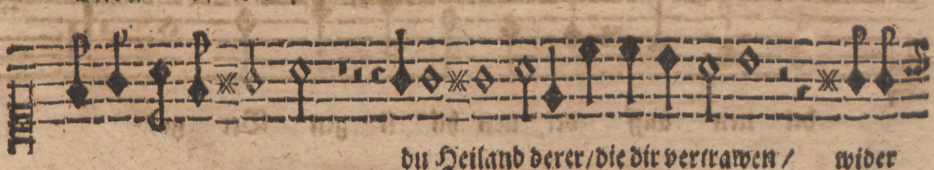 du Heiland derer/die dir vertrawen/ wider